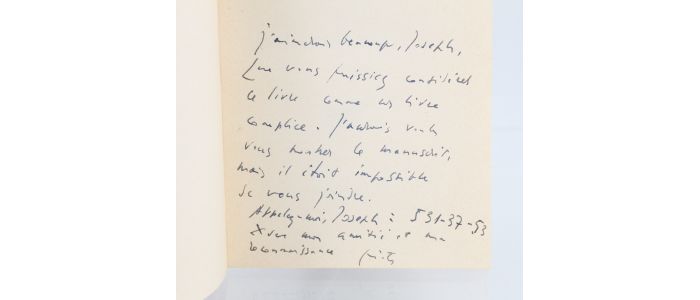 j'aimerais beaucoup, Joseph,
que vous puissiez considérer
ce livre comme un livre
complice. J'aurais voulu
vous montrer le manuscrit,
mais il était impossible
de vous joindre.
Appelez-moi, Joseph : 531-37-53
Avec mon amitié et ma
reconnaissance